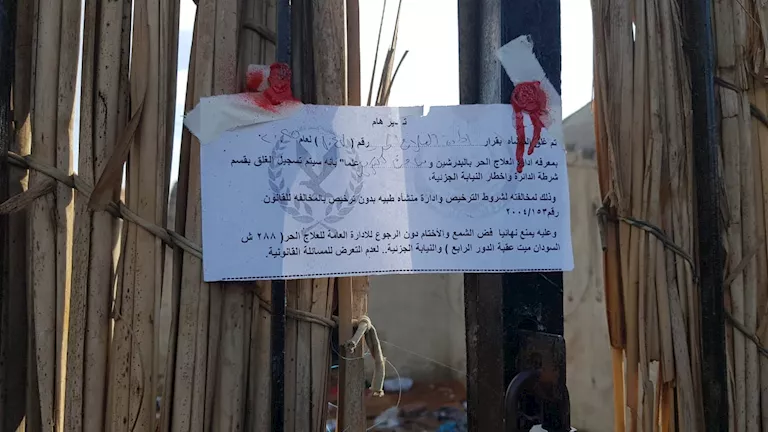 هام
تم غلق بقرار رقم ( ) لعام
بمعرفه العلاج الحر بالبدرشين علما" بانه سيتم تسجيل الغلق بقسم
شرطة الدائرة وإخطار النيابة الجزئية.
وذلك لمخالفته لشروط الترخيص وإدارة منشأه طبيه بدون ترخيص بالمخالفه للقانون
رقم٢٠٠٤/١٥٣
وعليه يمنع نهائيا فض الشمع والاختام دون الرجوع للادارة العامة للعلاج الحر( ٢٨٨ ش
السودان ميت عقبة الدور الرابع ) والنيابة الجزئية.. لعدم التعرض للمسائلة القانونية.